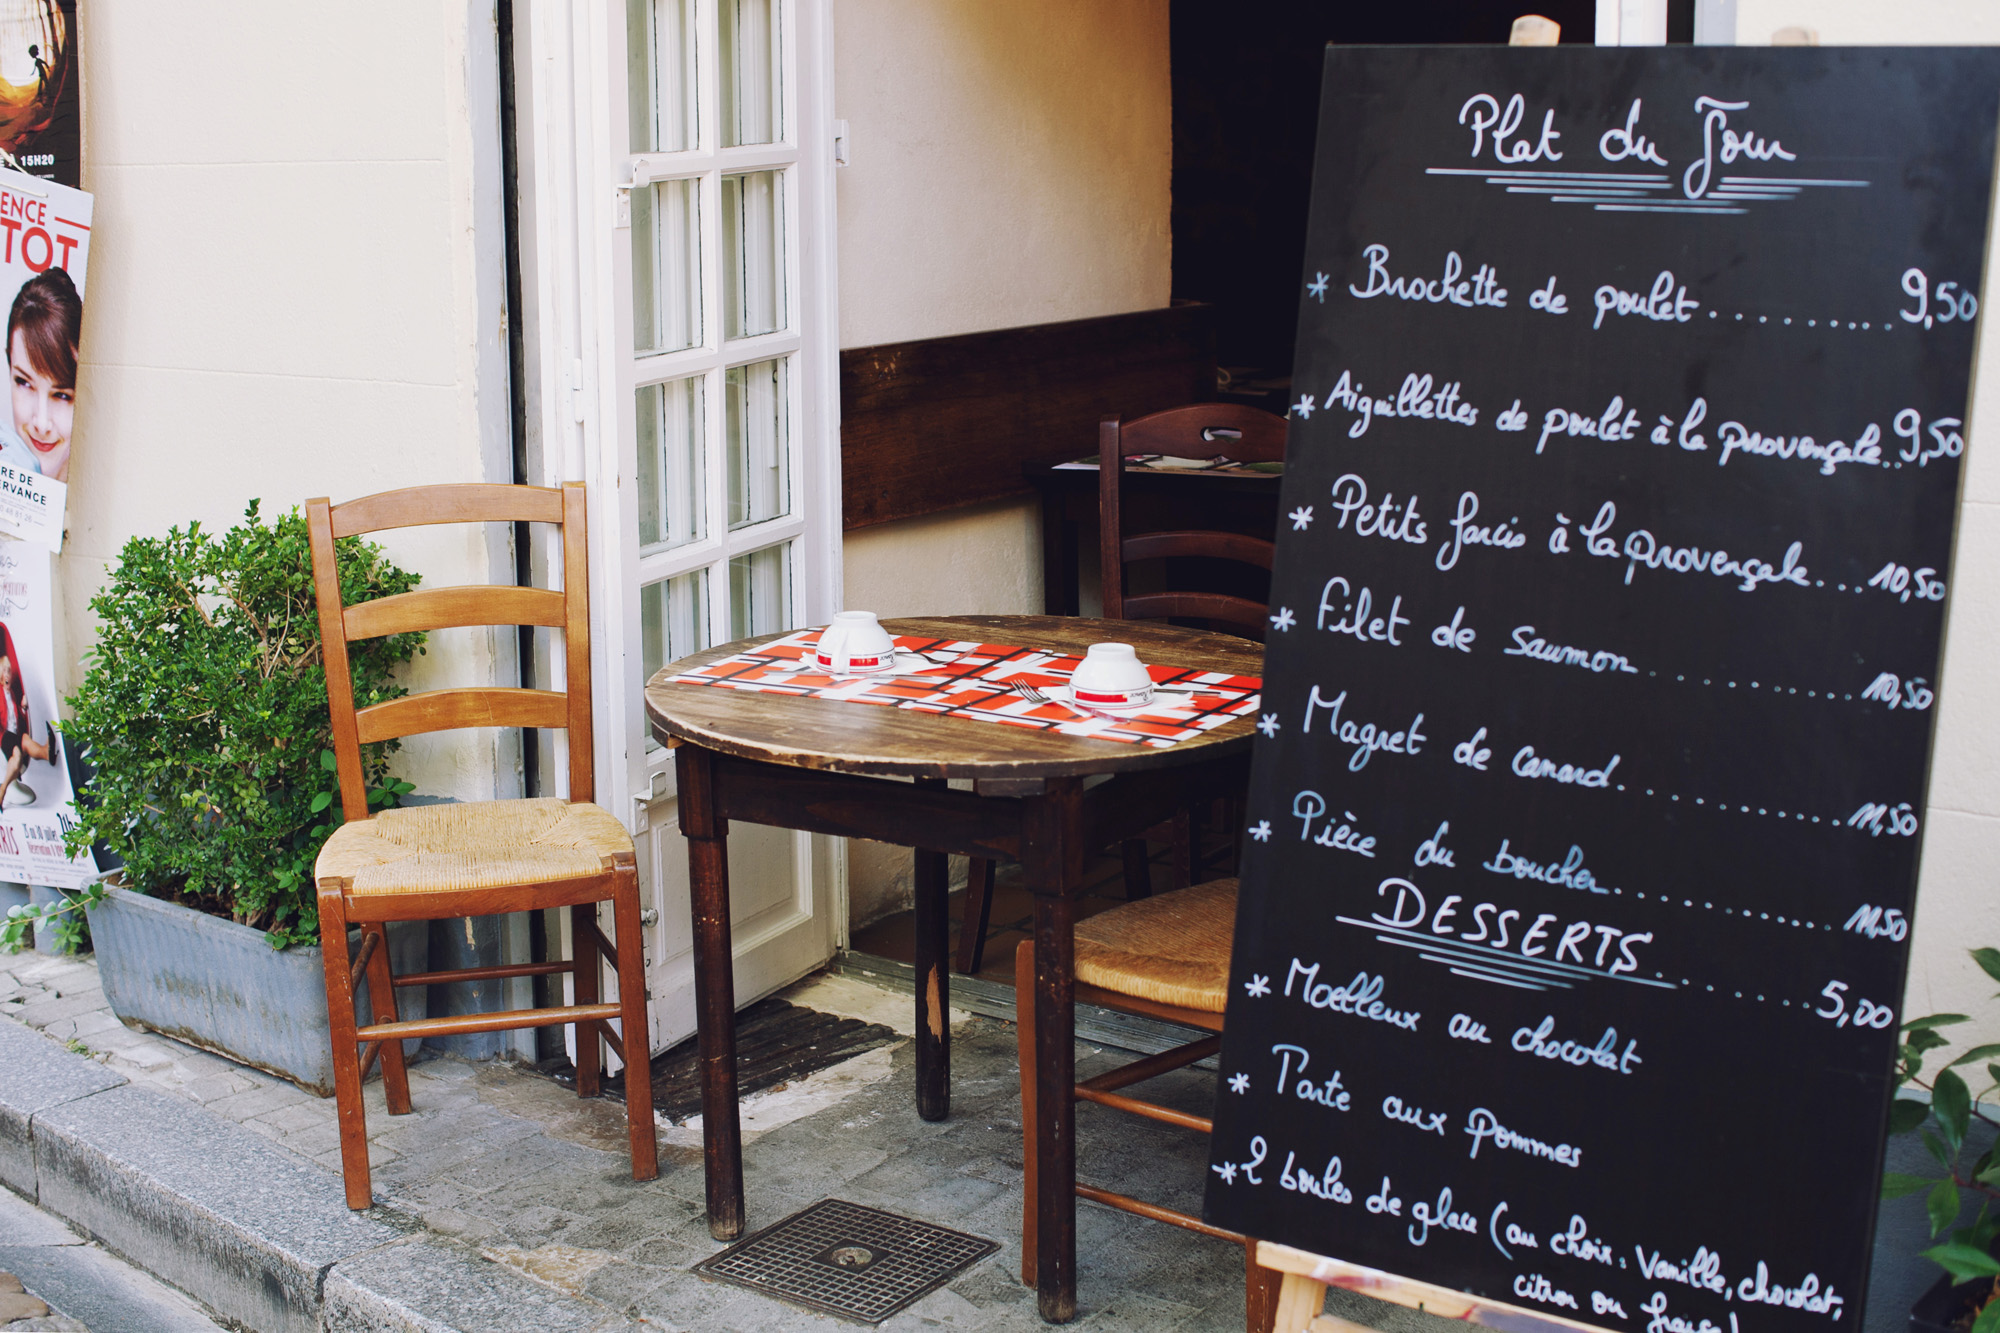 E À 15H20
ENCE
TOT
RE DE
ERVANCE
Plat du Jour
* Brochette de poulet .......... 9,50
* Aiguillettes de poulet à la provençale .. 9,50
* Petits farcis à la provençale ... 10,50
* Filet de saumon .......... 10,50
* Magret de canard .......... 11,50
* Pièce du boucher .......... 11,50
DESSERTS .......... 5,00
* Moelleux au chocolat
* Tarte aux pommes
* 2 boules de glace (au choix: Vanille, chocolat,
citron ou fraise)